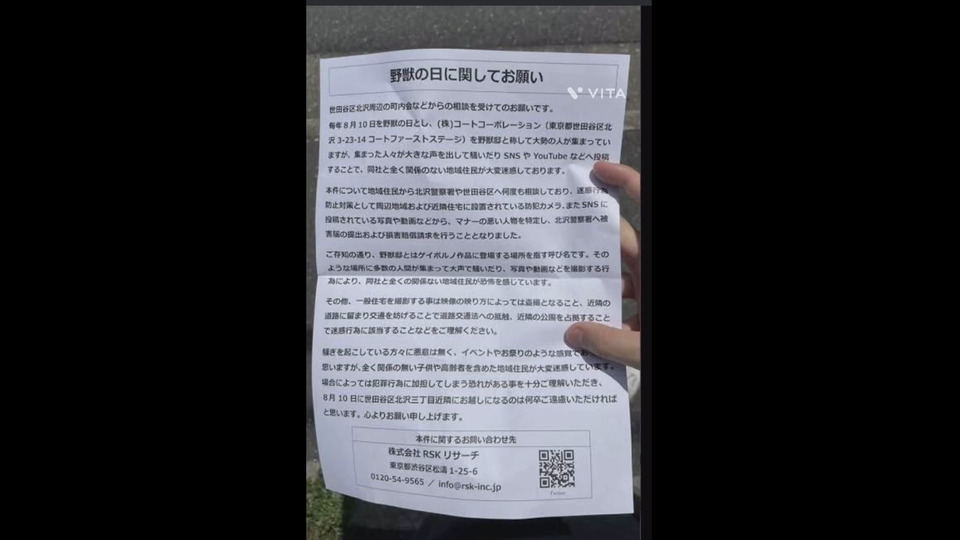 野獣の日に関してお願い
VITA
世田谷区北沢周辺の町内会などからの相談を受けてのお願いです。
毎年8月10日を野獣の日とし、(株)コートコーポレーション（東京都世田谷区北
沢3-23-14コートファーストステージ）を野獣邸と称して大勢の人が集まってい
ますが、集まった人々が大きな声を出して騒いだりSNSやYouTubeなどへ投稿
することで、同社と全く関係のない地域住民が大変迷惑しております。
本件について地域住民から北沢警察署や世田谷区へ何度も相談しており、迷惑行為
防止対策として周辺地域および近隣住宅に設置されている防犯カメラ、またSNSに
投稿されている写真や動画などから、マナーの悪い人物を特定し、北沢警察署へ被
害届の提出および損害賠償請求を行うこととなりました。
ご存知の通り、野獣邸とはゲイポルノ作品に登場する場所を指す呼び名です。その
ような場所に多数の人間が集まって大声で騒いだり、写真や動画などを撮影する行
為により、同社と全くの関係ない地域住民が恐怖を感じています。
その他、一般住宅を撮影する事は映像の映り方によっては盗撮となること、近隣の
道路に留まり交通を妨げることで道路交通法への抵触、近隣の公園を占拠すること
で迷惑行為に該当することなどをご理解ください。
騒ぎを起こしている方々に悪意は無く、イベントやお祭りのような感覚であ
思いますが、全く関係の無い子供や高齢者を含めた地域住民が大変迷惑しています。
場合によっては犯罪行為に加担してしまう恐れがある事を十分ご理解いただき、
8月10日に世田谷区北沢三丁目近隣にお越しになるのは何卒ご遠慮いただければ
と思います。心よりお願い申し上げます。
本件に関するお問い合わせ先
株式会社RSKリサーチ
東京都渋谷区松濤1-25-6
0120-54-9565 ／ info@rsk-inc.jp